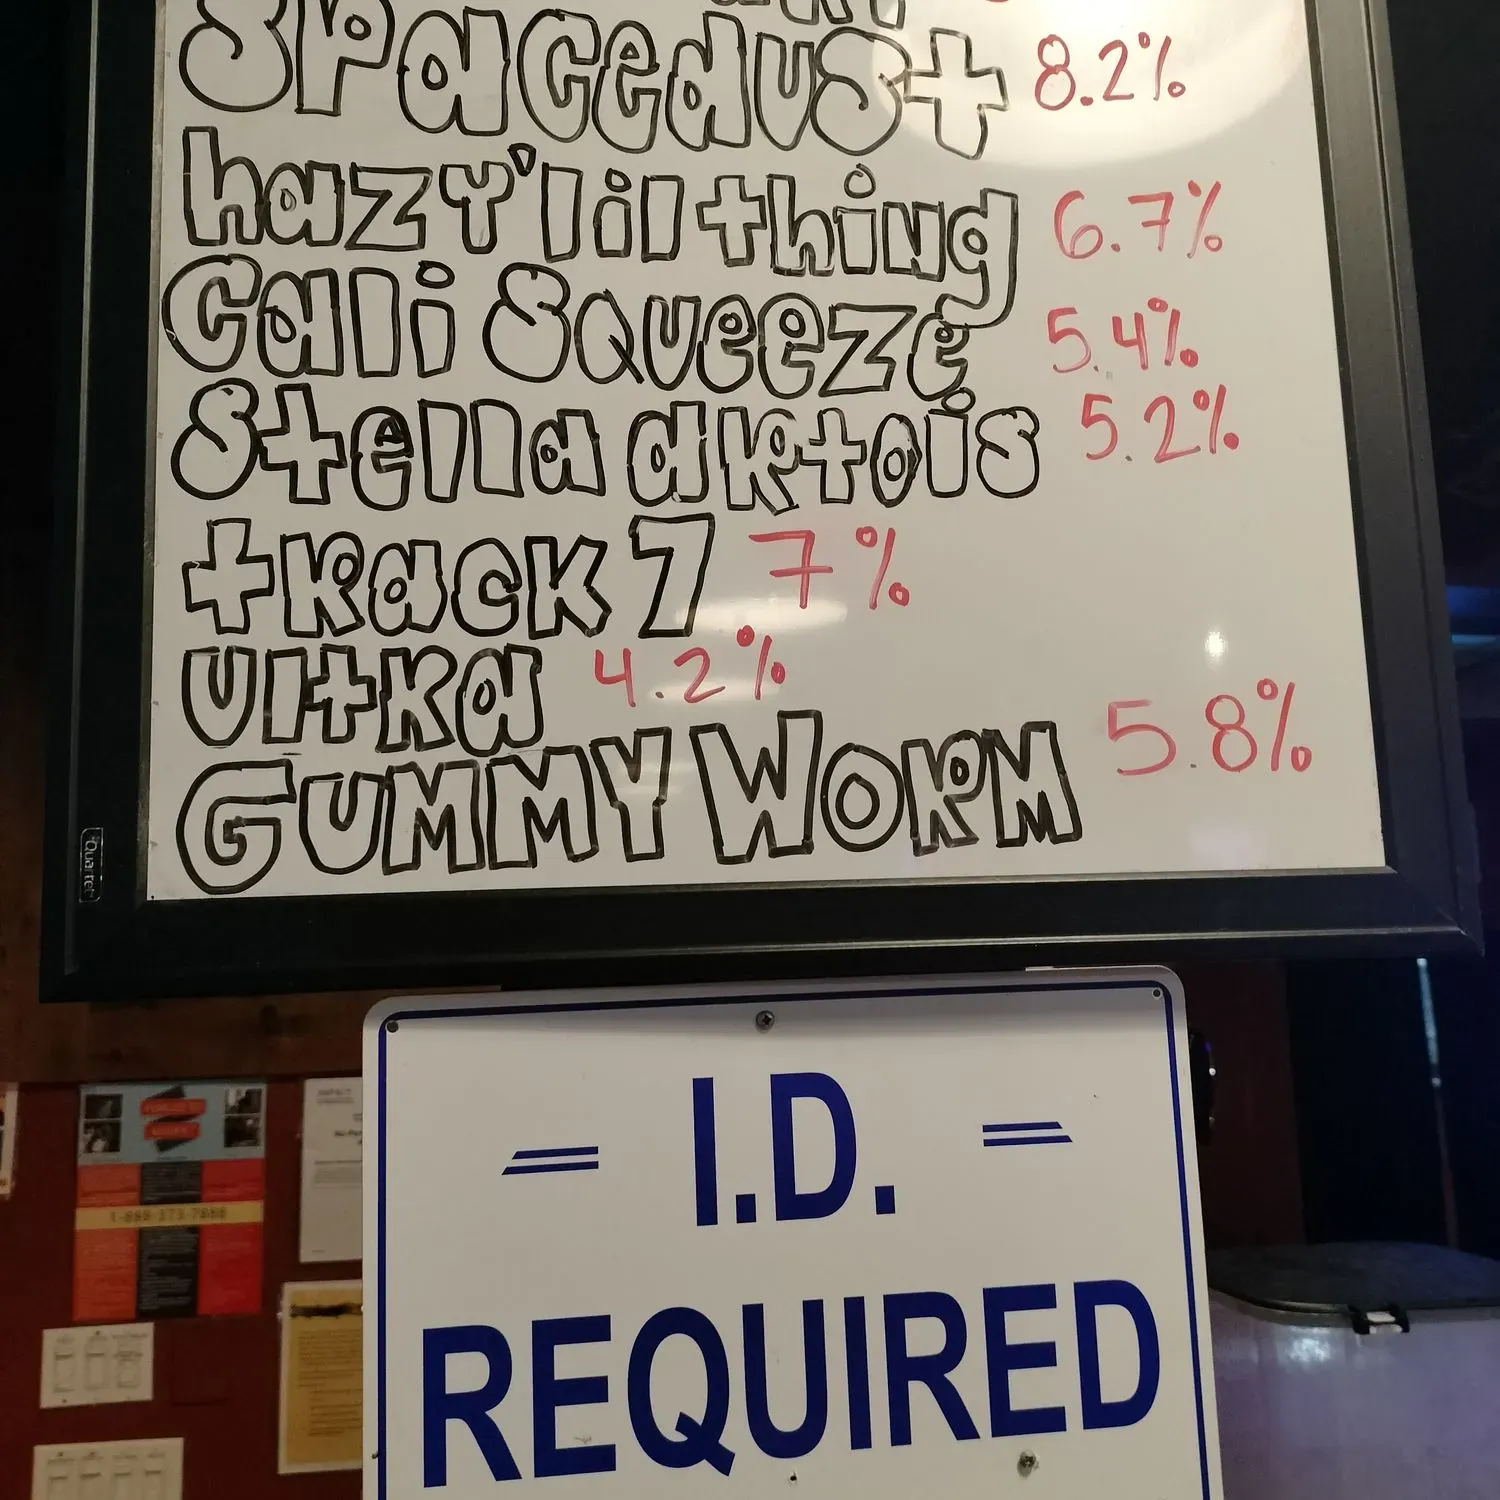 Spacedust 8.2%
hazy'lil thing 6.7%
Cali Squeeze 5.4%
Stella artois 5.2%
track 7 7%
ultra 4.2%
GUMMY WORM 5.8%
Quartet
I.D.
REQUIRED
1-888-373-7888